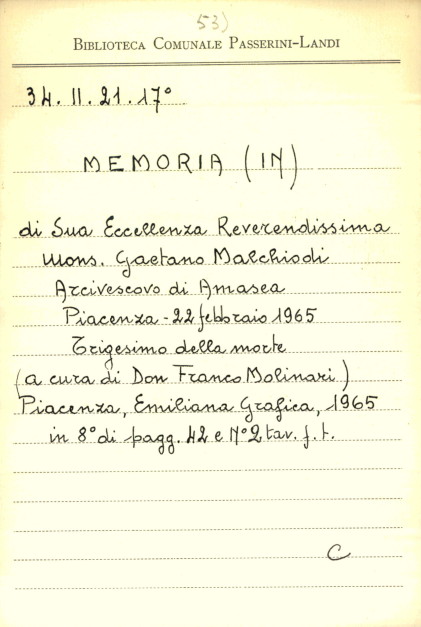 53)
BIBLIOTECA COMUNALE PASSERINI-LANDI
34. II. 21. 17°
MEMORIA (IN)
di Sua Eccellenza Reverendissima
Mons. Gaetano Malchiodi
Arcivescovo di Amasea
Piacenza - 22 febbraio 1965
Trigesimo della morte
(a cura di Don Franco Molinari)
Piacenza, Emiliana Grafica, 1965
in 8° di pagg. 42 e N° 2 tav. f. t.
C